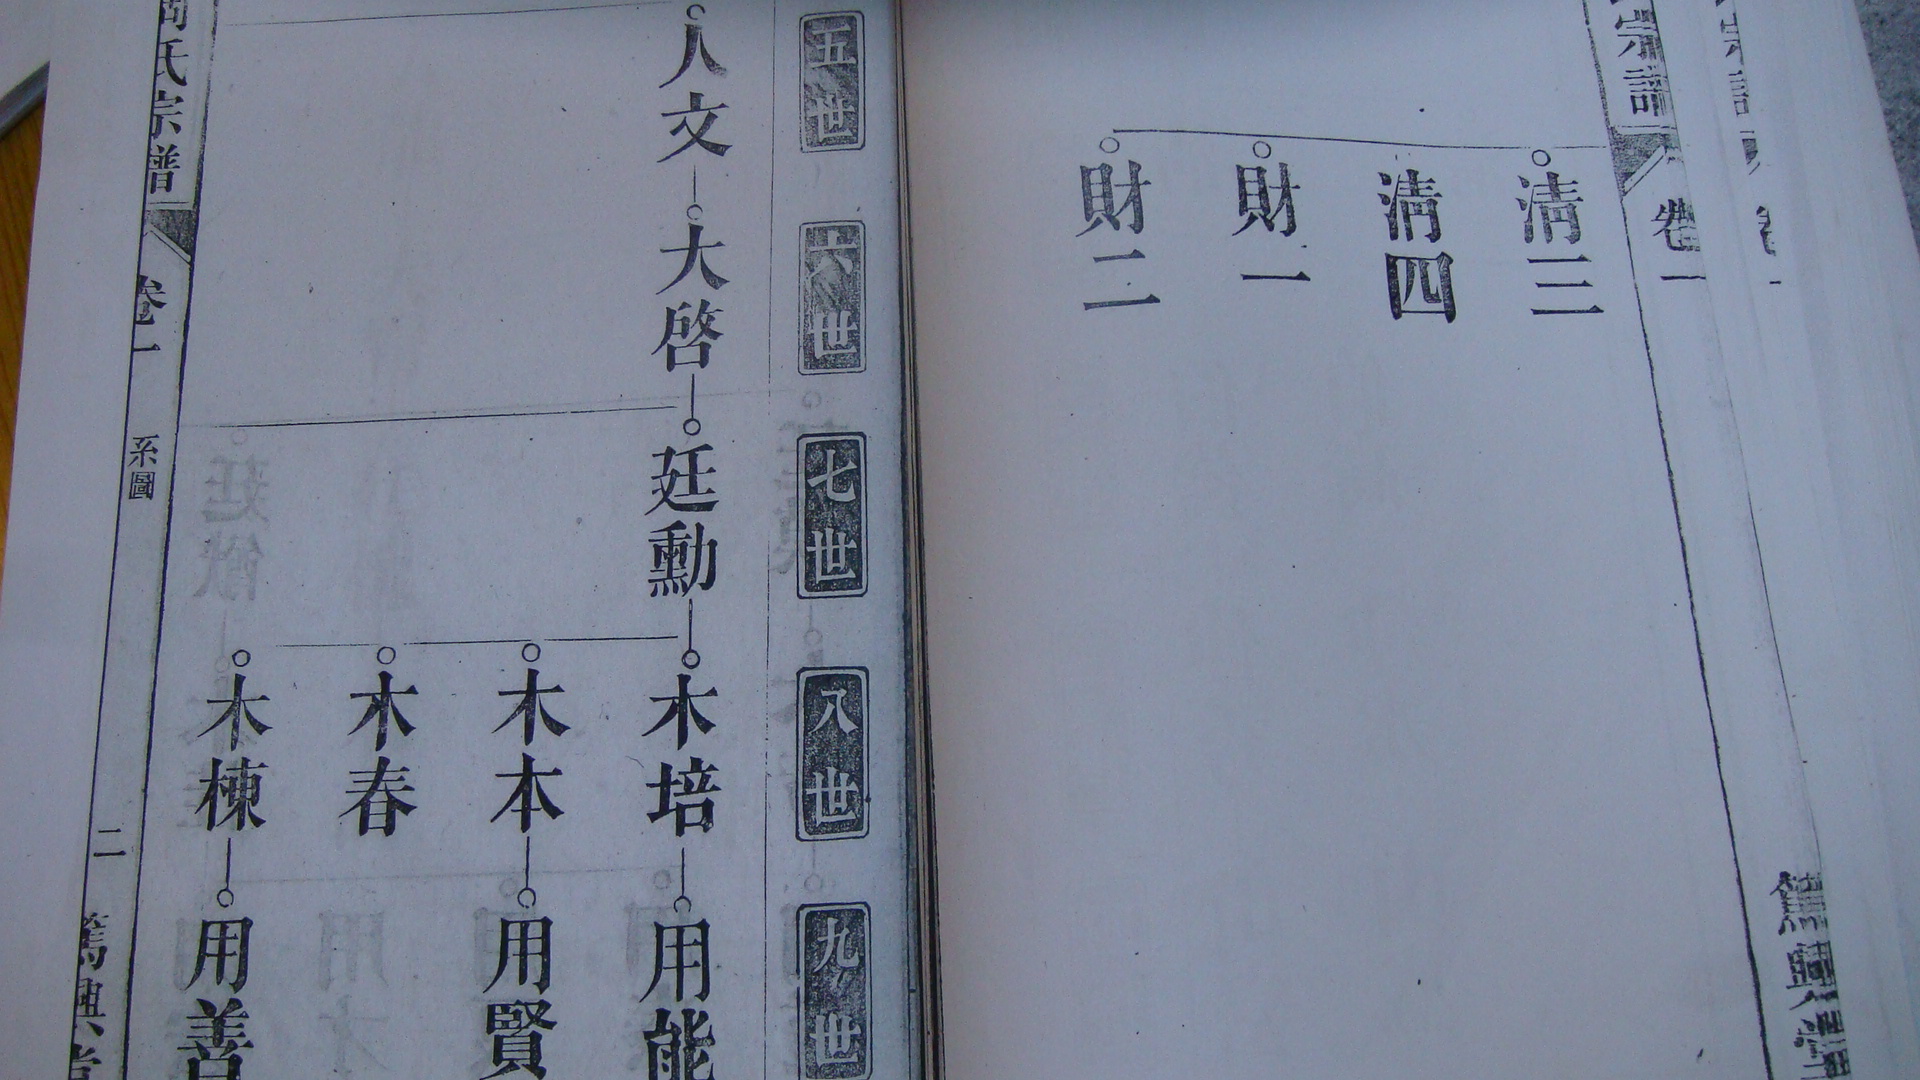 宗譜
卷一
清三
清四
財一
財二
篤興堂
五世
六世
七世
八世
九世
人文
大啓
廷勳
木培
木本
木春
木棟
用能
用賢
用善
氏宗譜
卷一
系圖
二
篤興堂